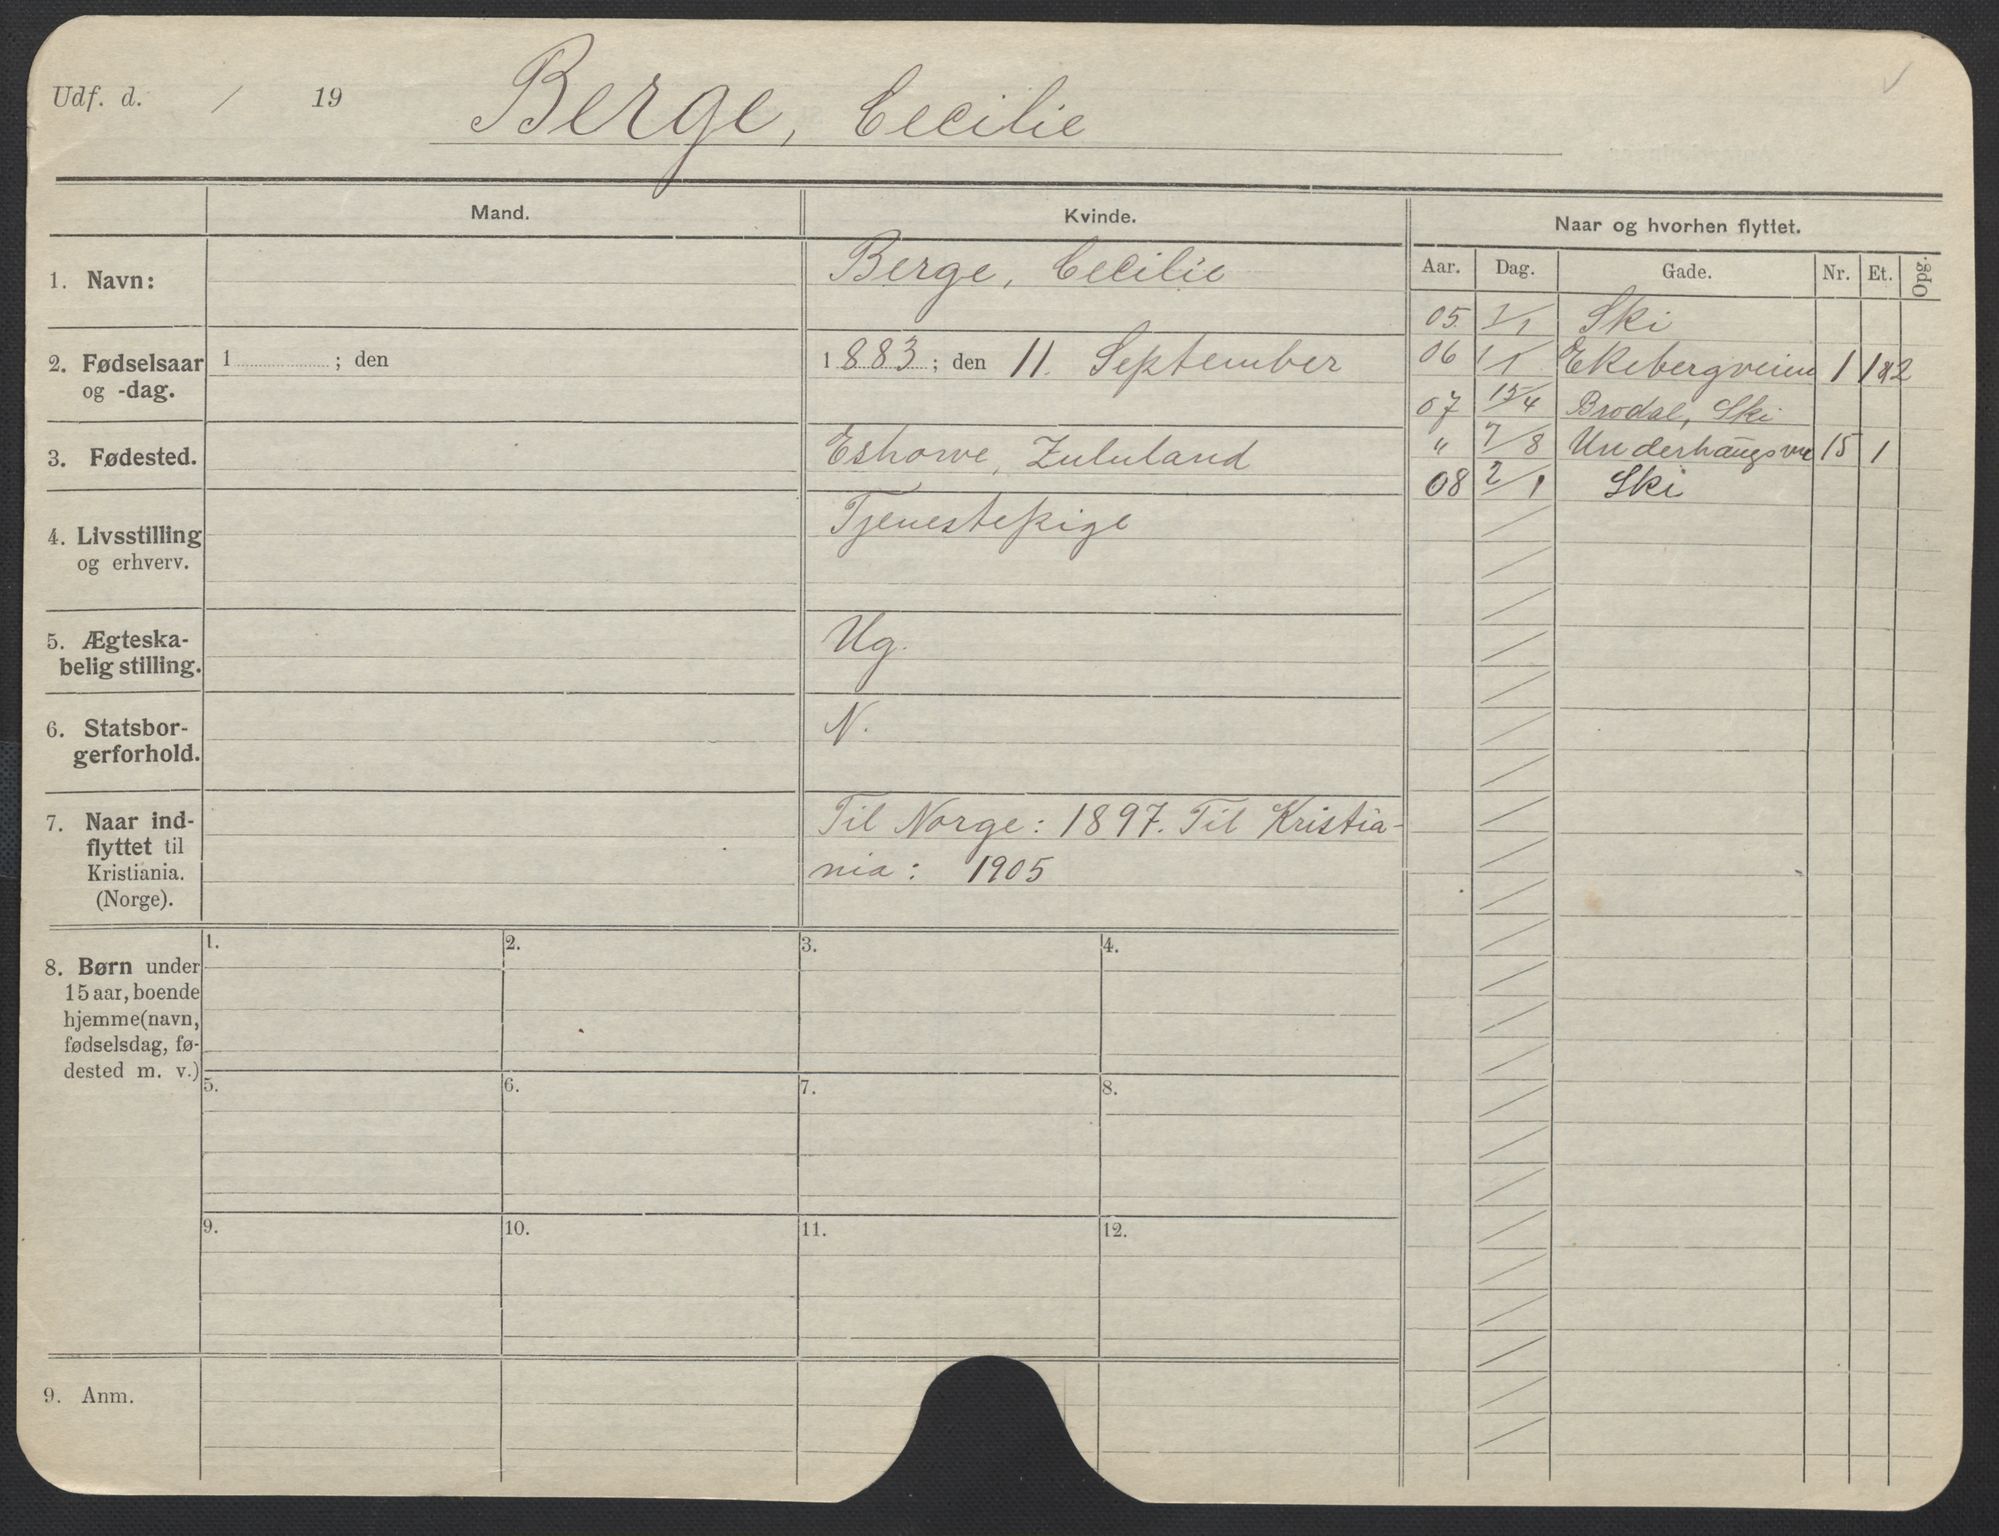 Udf. d. / 19
Berge, Cecilie
Mand.
Kvinde.
Naar og hvorhen flyttet.
Aar. Dag. Gade. Nr. Et. Opg.
1. Navn:
Berge, Cecilie
2. Fødselsaar
og -dag.
1 ; den
1883 ; den 11. September
3. Fødested.
Eshowe, Zululand
4. Livsstilling
og erhverv.
Tjenestepige
5. Ægteska-
belig stilling.
Ug.
6. Statsbor-
gerforhold.
N.
7. Naar ind-
flyttet til
Kristiania.
(Norge).
Til Norge: 1897. Til Kristia-
nia: 1905
05. 1/1 Ski
06 1/1 Ekebergveien 1 1 2
07 15/4 Brodal, Ski
" 7/8 Underhaugsvn 15 1
08 2/1 Ski
8. Børn under
15 aar, boende
hjemme (navn,
fødselsdag, fø-
dested m. v.)
1. 2. 3. 4.
5. 6. 7. 8.
9. 10. 11. 12.
9. Anm.